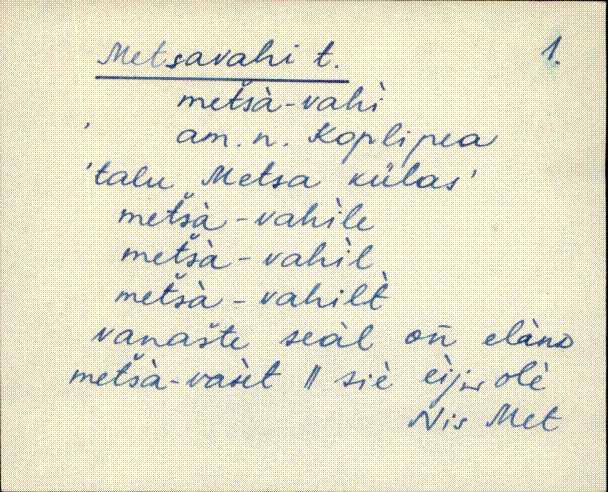 Metsavahi t. 1.
metšà-vahì
am. n. Koplipea
'talu Metsa külas'
metšà-vahìle
metšà-vahìl
metšà-vahilt
vanašte seàl on̄ elànd
metšà-vaìt || siè èij olè
Nis Met